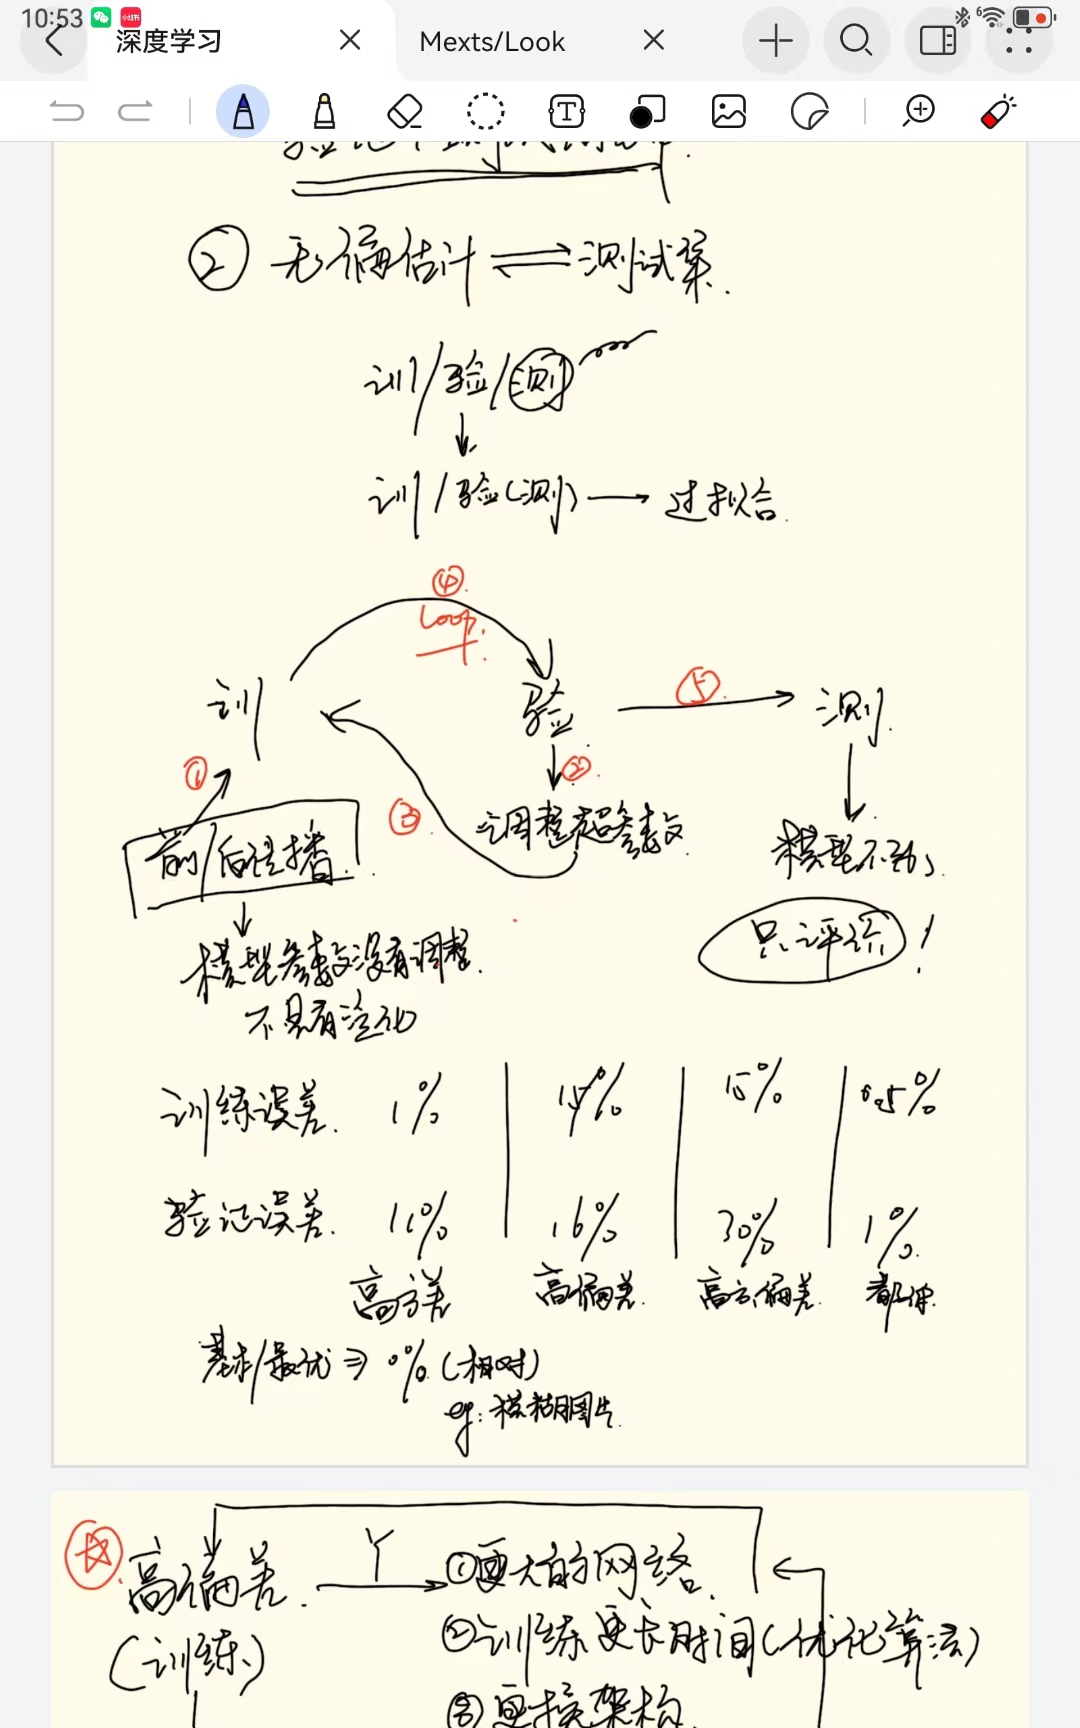 10:53
深度学习
Mexts/Look
② 无偏估计 ⇌ 测试集.
训/验/测
训/验(测) → 过拟合.
④
Loop.
训
验
⑤
测
①
②
③
调整超参数
前/后传播
模型不动
模型参数没有调整.
只评估!
不具有泛化
训练误差. 1% 15% 15% 0.5%
验证误差. 11% 16% 30% 1%
高方差 高偏差. 高方.偏差. 都低.
基本/最优 ⇒ 0% (相对)
eg: 模糊图片.
高偏差. Y ①更大的网络.
(训练) ②训练更长时间(优化算法)
③更换架构